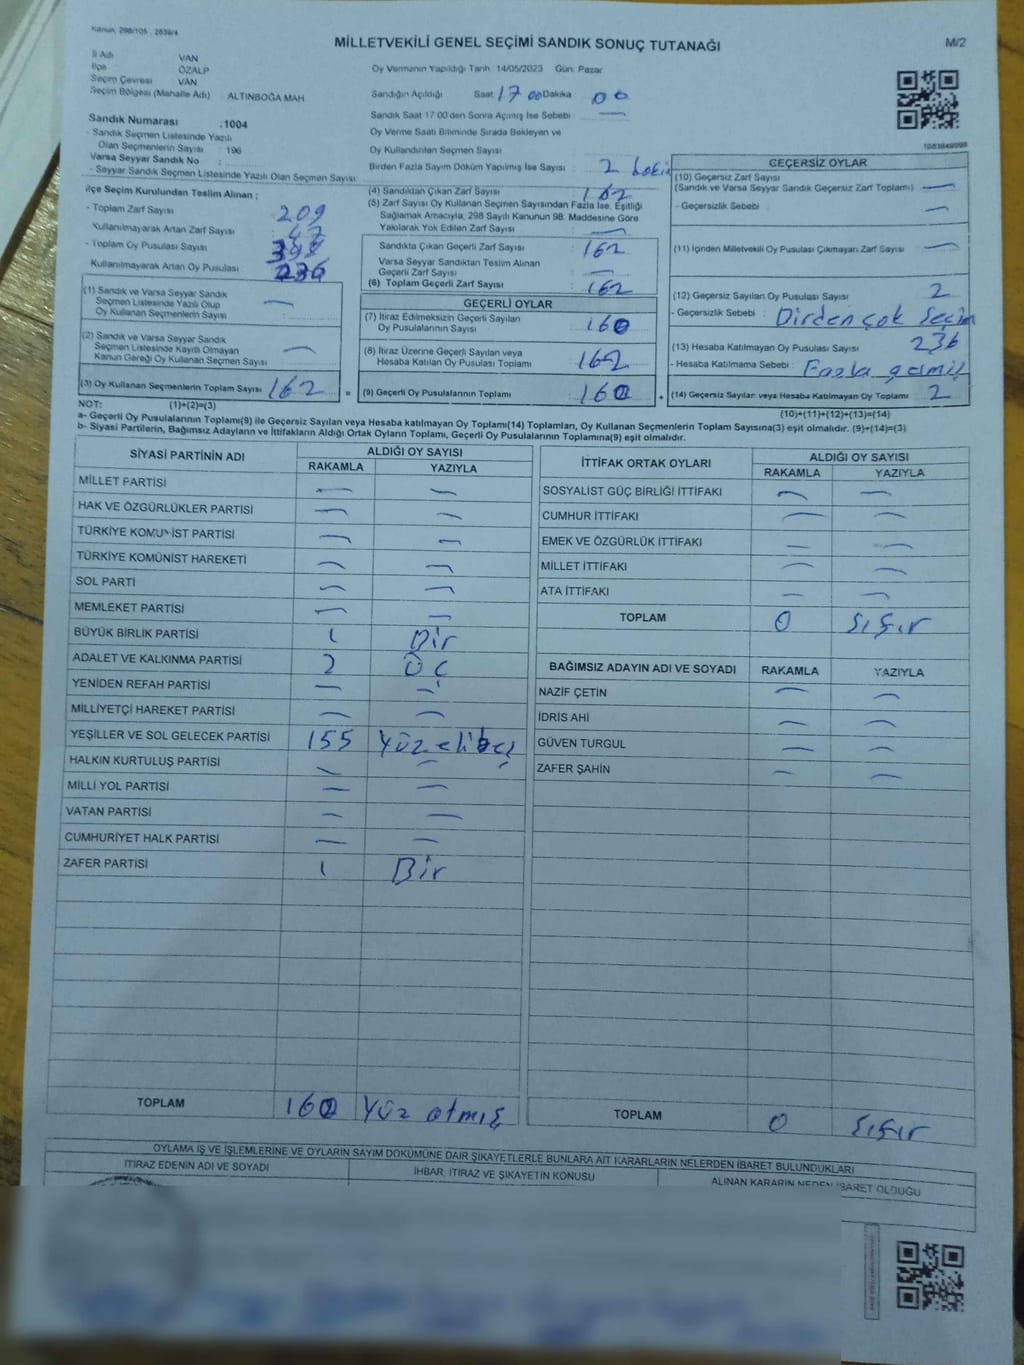 Kanun, 298/105 , 2839/4
MİLLETVEKİLİ GENEL SEÇİMİ SANDIK SONUÇ TUTANAĞI
M/2
İl Adı VAN
İlçe ÖZALP
Seçim Çevresi VAN
Seçim Bölgesi (Mahalle Adı) ALTINBOĞA MAH
Sandık Numarası :1004
- Sandık Seçmen Listesinde Yazılı
Olan Seçmenlerin Sayısı : 196
Varsa Seyyar Sandık No :
- Seyyar Sandık Seçmen Listesinde Yazılı Olan Seçmen Sayısı:
Oy Vermenin Yapıldığı Tarih: 14/05/2023 Gün: Pazar
Sandığın Açıldığı Saat: 17 00 Dakika 00
Sandık Saat 17:00'den Sonra Açılmış İse Sebebi : —
Oy Verme Saati Bitiminde Sırada Bekleyen ve
Oy Kullandırılan Seçmen Sayısı
Birden Fazla Sayım Döküm Yapılmış İse Sayısı : 2
İlçe Seçim Kurulundan Teslim Alınan ;
- Toplam Zarf Sayısı : 209
Kullanılmayarak Artan Zarf Sayısı : 47
- Toplam Oy Pusulası Sayısı : 398
Kullanılmayarak Artan Oy Pusulası 236
(1) Sandık ve Varsa Seyyar Sandık
Seçmen Listesinde Yazılı Olup
Oy Kullanan Seçmenlerin Sayısı : —
(2) Sandık ve Varsa Seyyar Sandık
Seçmen Listesinde Kayıtlı Olmayan
Kanun Gereği Oy Kullanan Seçmen Sayısı : —
(3) Oy Kullanan Seçmenlerin Toplam Sayısı : 162 =
(4) Sandıktan Çıkan Zarf Sayısı : 162
(5) Zarf Sayısı Oy Kullanan Seçmen Sayısından Fazla İse, Eşitliği
Sağlamak Amacıyla, 298 Sayılı Kanunun 98. Maddesine Göre
Yakılarak Yok Edilen Zarf Sayısı : —
Sandıkta Çıkan Geçerli Zarf Sayısı : 162
Varsa Seyyar Sandıktan Teslim Alınan
Geçerli Zarf Sayısı : —
(6) Toplam Geçerli Zarf Sayısı : 162
GEÇERLİ OYLAR
(7) İtiraz Edilmeksizin Geçerli Sayılan
Oy Pusulalarının Sayısı : 160
(8) İtiraz Üzerine Geçerli Sayılan veya
Hesaba Katılan Oy Pusulası Toplamı : 162
(9) Geçerli Oy Pusulalarının Toplamı : 160 +
GEÇERSİZ OYLAR
(10) Geçersiz Zarf Sayısı
(Sandık ve Varsa Seyyar Sandık Geçersiz Zarf Toplamı) : —
- Geçersizlik Sebebi : —
(11) İçinden Milletvekili Oy Pusulası Çıkmayan Zarf Sayısı : —
(12) Geçersiz Sayılan Oy Pusulası Sayısı : 2
- Geçersizlik Sebebi : Birden çok Seçim
(13) Hesaba Katılmayan Oy Pusulası Sayısı : 236
- Hesaba Katılmama Sebebi : Fazla gelmiş
(14) Geçersiz Sayılan veya Hesaba Katılmayan Oy Toplamı : 2
NOT: (1)+(2)=(3)
(10)+(11)+(12)+(13)=(14)
a- Geçerli Oy Pusulalarının Toplamı(9) ile Geçersiz Sayılan veya Hesaba katılmayan Oy Toplamı(14) Toplamları, Oy Kullanan Seçmenlerin Toplam Sayısına(3) eşit olmalıdır. (9)+(14)=(3)
b- Siyasi Partilerin, Bağımsız Adayların ve İttifakların Aldığı Ortak Oyların Toplamı, Geçerli Oy Pusulalarının Toplamına(9) eşit olmalıdır.
SİYASİ PARTİNİN ADI
ALDIĞI OY SAYISI
RAKAMLA YAZIYLA
MİLLET PARTİSİ — —
HAK VE ÖZGÜRLÜKLER PARTİSİ — —
TÜRKİYE KOMÜNİST PARTİSİ — —
TÜRKİYE KOMÜNİST HAREKETİ — —
SOL PARTİ — —
MEMLEKET PARTİSİ — —
BÜYÜK BİRLİK PARTİSİ 1 Bir
ADALET VE KALKINMA PARTİSİ 2 ÜÇ
YENİDEN REFAH PARTİSİ — —
MİLLİYETÇİ HAREKET PARTİSİ — —
YEŞİLLER VE SOL GELECEK PARTİSİ 155 Yüz elli beş
HALKIN KURTULUŞ PARTİSİ — —
MİLLİ YOL PARTİSİ — —
VATAN PARTİSİ — —
CUMHURİYET HALK PARTİSİ — —
ZAFER PARTİSİ 1 Bir
TOPLAM 160 Yüz atmış
İTTİFAK ORTAK OYLARI
ALDIĞI OY SAYISI
RAKAMLA YAZIYLA
SOSYALİST GÜÇ BİRLİĞİ İTTİFAKI — —
CUMHUR İTTİFAKI — —
EMEK VE ÖZGÜRLÜK İTTİFAKI — —
MİLLET İTTİFAKI — —
ATA İTTİFAKI — —
TOPLAM 0 Sıfır
BAĞIMSIZ ADAYIN ADI VE SOYADI RAKAMLA YAZIYLA
NAZİF ÇETİN — —
İDRİS AHİ — —
GÜVEN TURGUL — —
ZAFER ŞAHİN — —
TOPLAM 0 Sıfır
OYLAMA İŞ VE İŞLEMLERİNE VE OYLARIN SAYIM DÖKÜMÜNE DAİR ŞİKAYETLERLE BUNLARA AİT KARARLARIN NELERDEN İBARET BULUNDUKLARI
İTİRAZ EDENİN ADI VE SOYADI
İHBAR, İTİRAZ VE ŞİKAYETİN KONUSU
ALINAN KARARIN NEDEN İBARET OLDUĞU